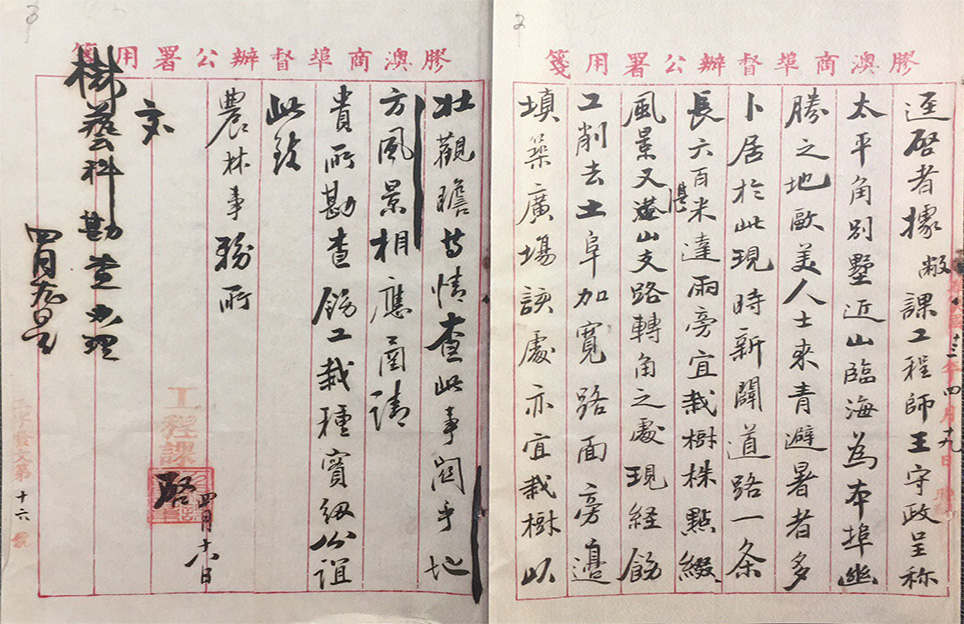 膠澳商埠督辦公署用箋
十三年四月十九日
逕啓者據敝課工程師王守政呈称
太平角別墅近山臨海為本埠幽
勝之地歐美人士來青避暑者多
卜居於此現時新闢道路一条
長六百米達兩旁宜栽樹株點綴
風景又湛山支路轉角之處現経飭
工削去土阜加寬路面旁邊
填築廣塲該處亦宜栽樹以
膠澳商埠督辦公署用箋
壯觀瞻等情查此事関乎地
方風景相應函請
貴所勘查飭工栽種實紉公誼
此致
農林事務所
工程課啓
四月十八日
交
樹藝科勘查辦理
四月
字發文第十六號